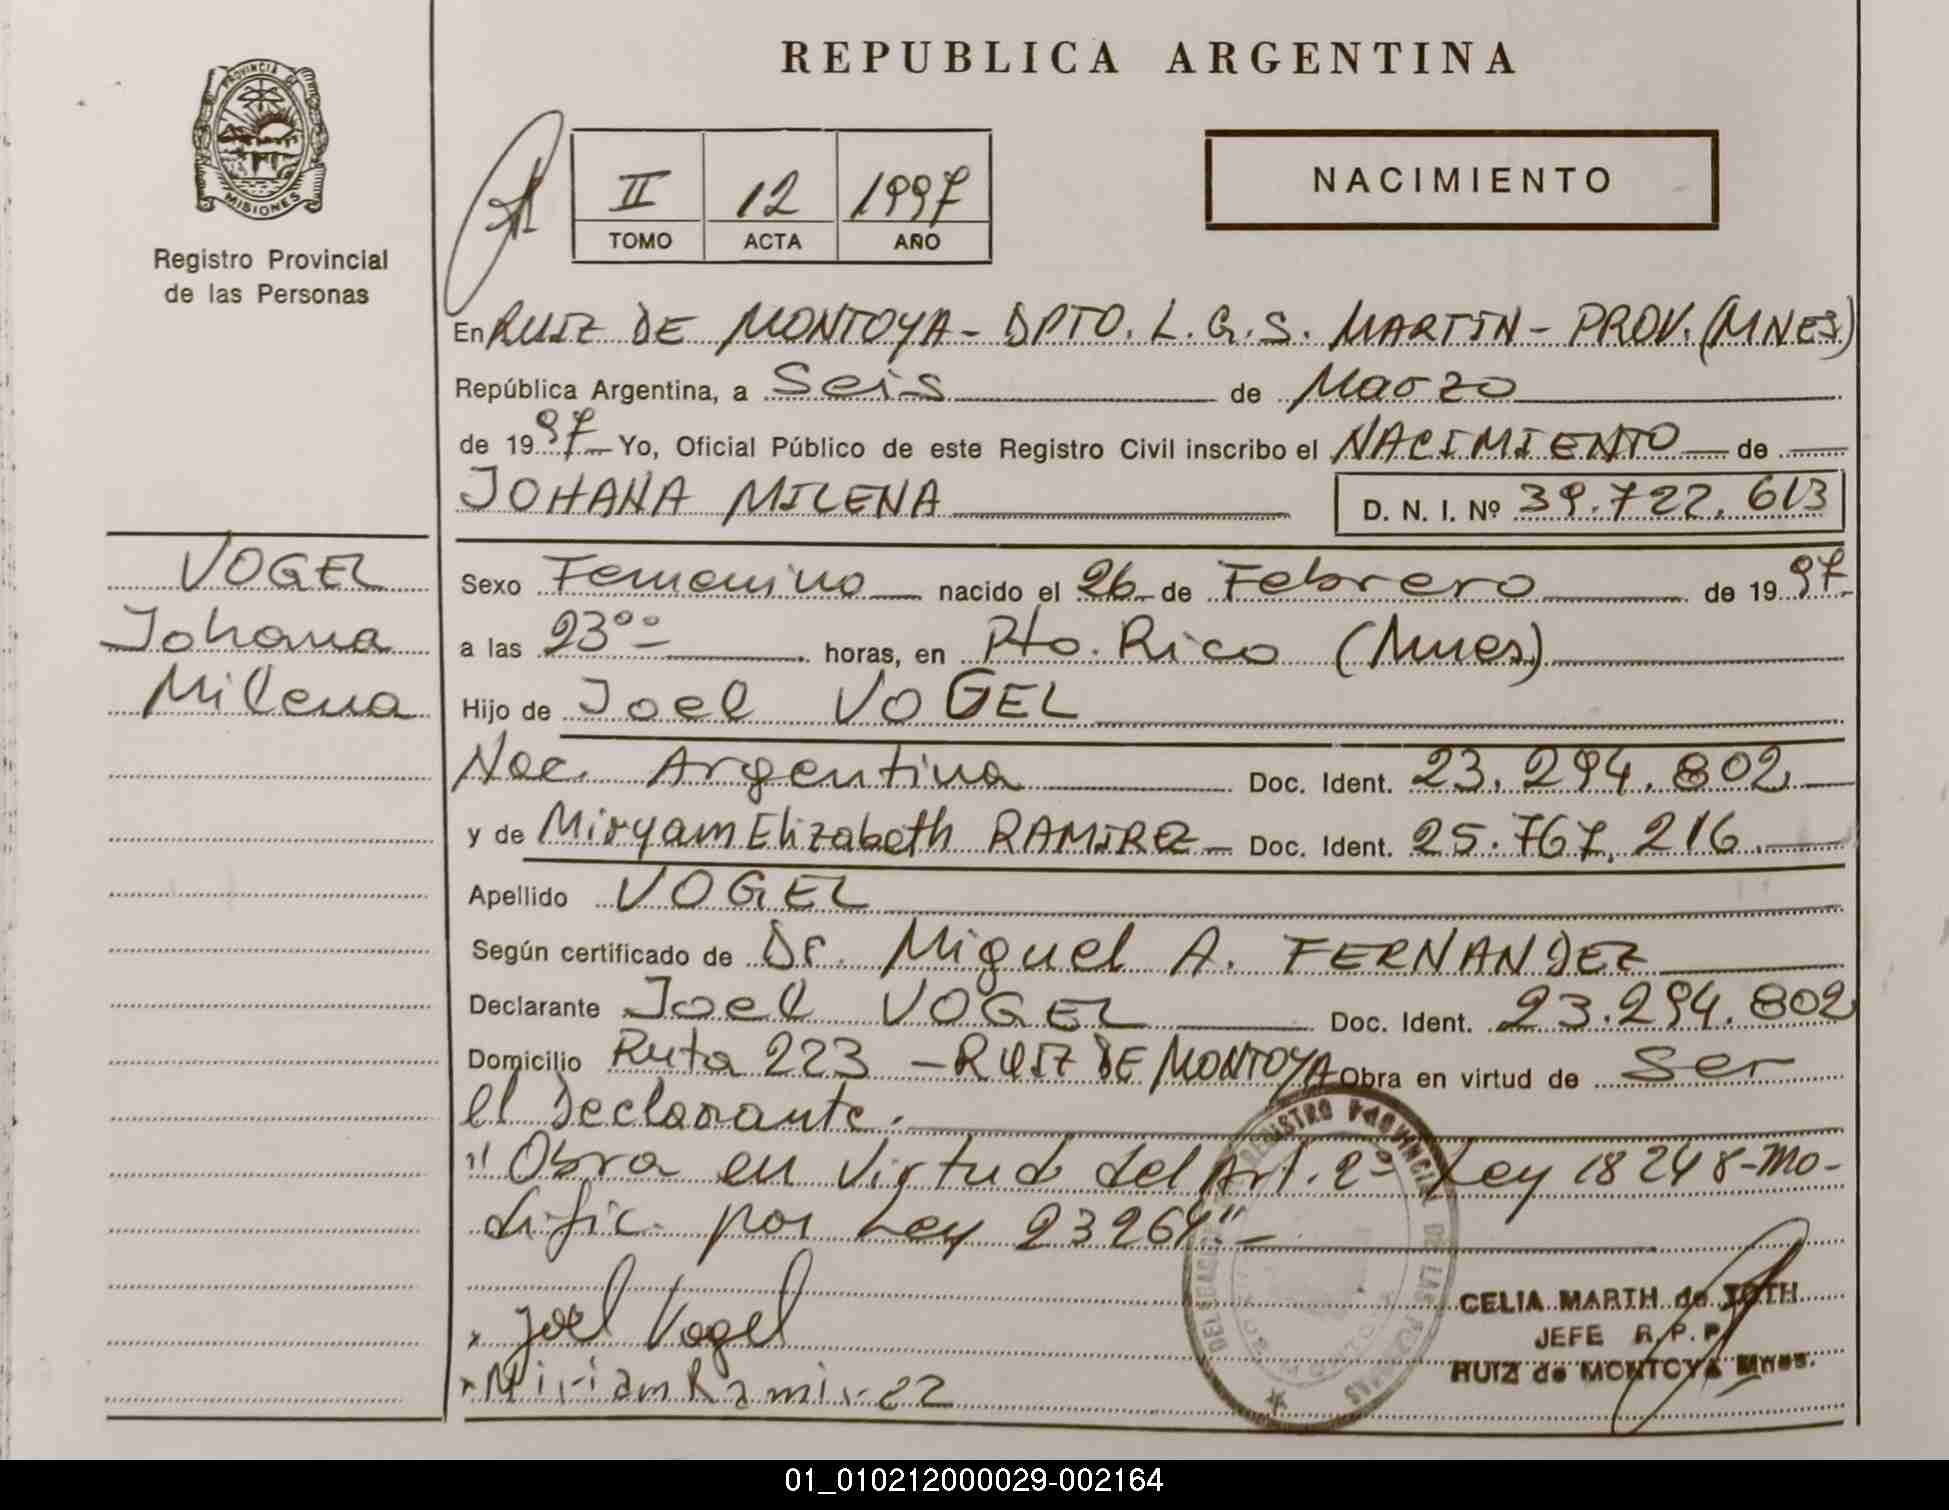 REPUBLICA ARGENTINA
PROVINCIA DE
MISIONES
Registro Provincial
de las Personas
II 12 1997
TOMO ACTA AÑO
NACIMIENTO
En RUIZ DE MONTOYA - DPTO. L. G. S. MARTIN - PROV. (MNES)
República Argentina, a Seis de Marzo
de 19 97 Yo, Oficial Público de este Registro Civil inscribo el NACIMIENTO de
JOHANA MILENA D. N. I. Nº 39.722.613
VOGEL
Johana
Milena
Sexo Femenino nacido el 26 de Febrero de 19 97
a las 23°° horas, en Pto. Rico (Mnes)
Hijo de Joel VOGEL
Nac. Argentina Doc. Ident. 23.294.802
y de Miryam Elizabeth RAMIREZ Doc. Ident. 25.767.216
Apellido VOGEL
Según certificado de Dr. Miguel A. FERNANDEZ
Declarante Joel VOGEL Doc. Ident. 23.294.802
Domicilio Ruta 223 - RUIZ DE MONTOYA Obra en virtud de Ser
el Declarante.
"Obra en virtud del Art. 2º Ley 18248-Mo-
dific. por Ley 23264"
Joel Vogel
Miriam Ramirez
CELIA MARTH de TOTH
JEFE R.P.P.
RUIZ de MONTOYA Mnes.
REGISTRO PROVINCIAL DE LAS PERSONAS
01_010212000029-002164